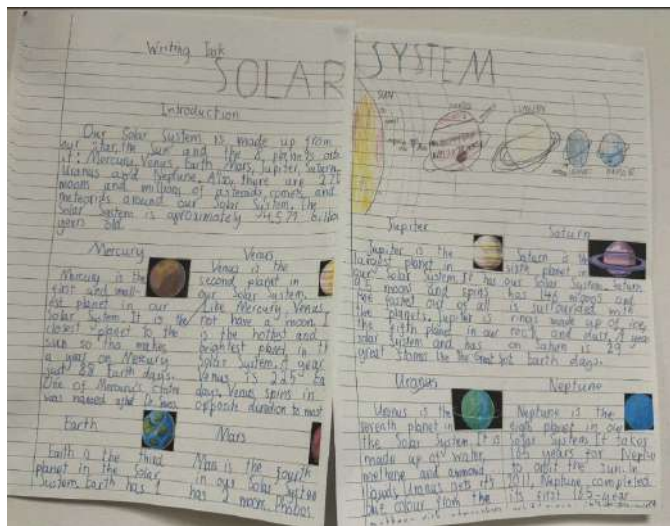 Writing Task
SOLAR SYSTEM
Introduction
Our Solar System is made up from
our star, the sun and the 8 planets orbit
it: Mercury, Venus, Earth, Mars, Jupiter, Saturn,
Uranus and Neptune. Also, there are
moons and millions of asteroids, comets and
meteorids around our Solar System. The
Solar System is aproximately billion
years old.
Mercury
Mercury is the
first and small-
est planet in our
Solar System. It is the
closest planet to the
sun so this makes
a year on Mercury
just 88 Earth days.
One of Mercury's
was named after
Venus
Venus is the
second planet in
our Solar System.
Like Mercury, Venus
not have a moon. I
is the hottest and
brightest planet in th
Solar System. A year
Venus is 225 Ea
days. Venus spins in
opposite direction to most
Earth
Earth is the third
planet in the Solar
System. Earth has 1
Mars
Mars is the fourth
in our Solar System
has 2 moon, Phobos
SUN
Jupiter
Jupiter is the
largest planet in
our Solar System. It has
moons and spins
the fastest out of all
the planets. Jupiter is
the fifth planet in our
solar system and has
great storms like the Great
Saturn
Saturn is the
sixth planet in
our Solar System. Saturn
has 146 moons and
is surrounded with
rings made up of ice,
rock and dust. A year
on Saturn is 29
Earth days.
Uranus
Uranus is the
seventh planet in
the Solar System. It is
made up of water,
methane and
clouds. Uranus gets it's
colour from the
Neptune
Neptune is the
eigth planet in our
Solar System. It takes
165 years for Neptu
to orbit the sun. In
2011, Neptune completed
its first 165-year